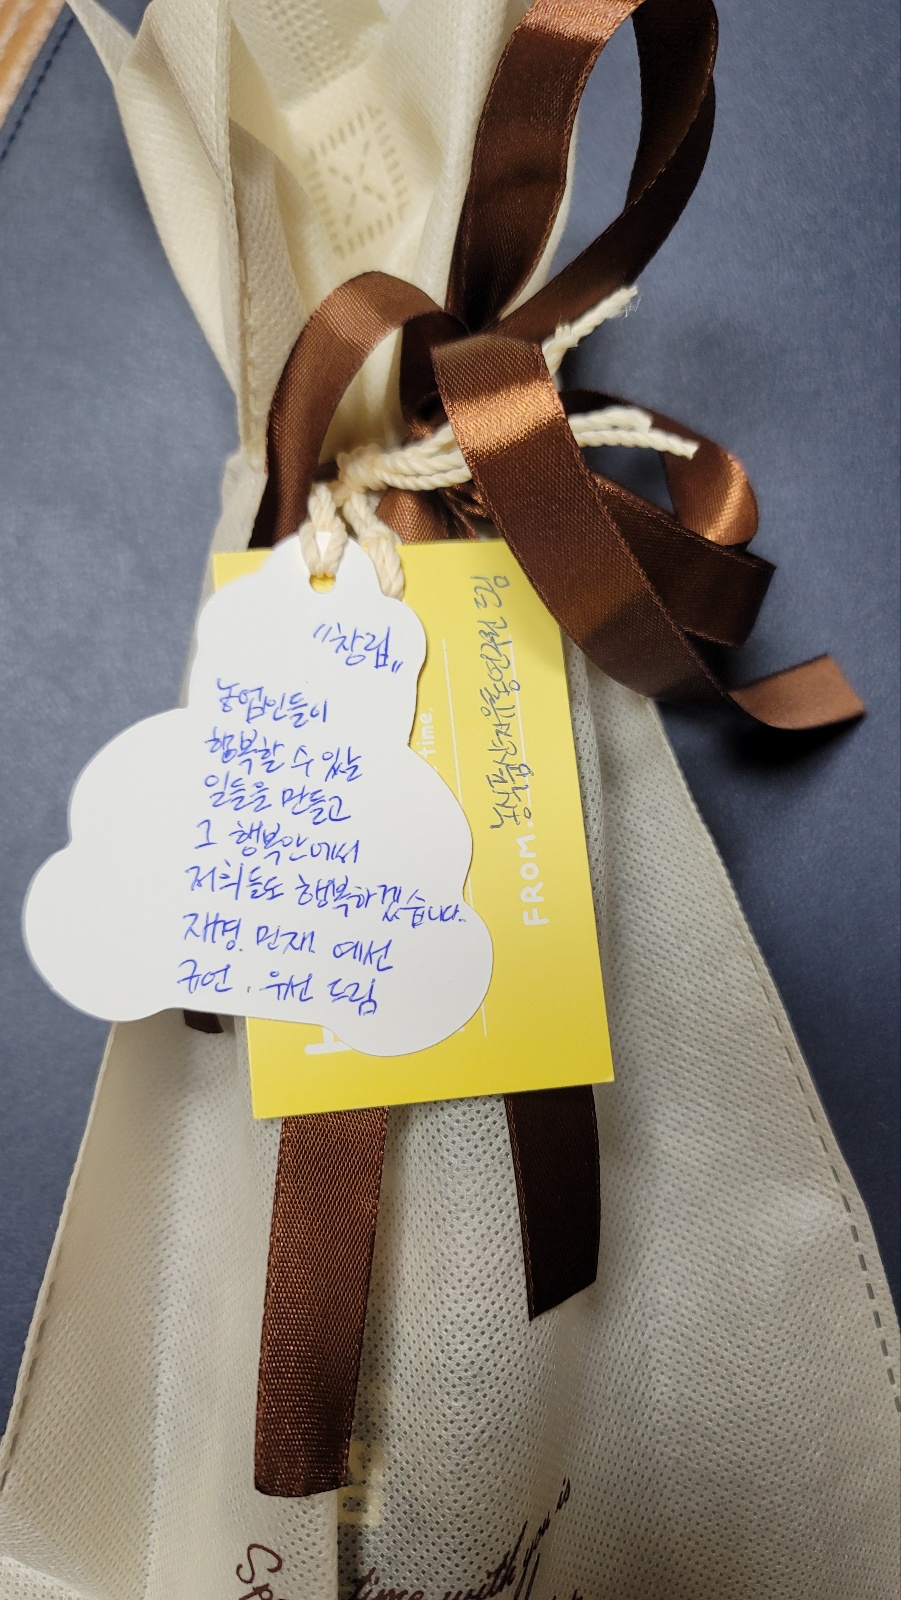 "창립"
농업인들이
행복할 수 있는
일들을 만들고
그 행복안에서
저희들도 행복하겠습니다.
재경. 민재. 예선
규언. 유선 드림
time.
FROM.
농식품산자유통연구원 드림
time with you is